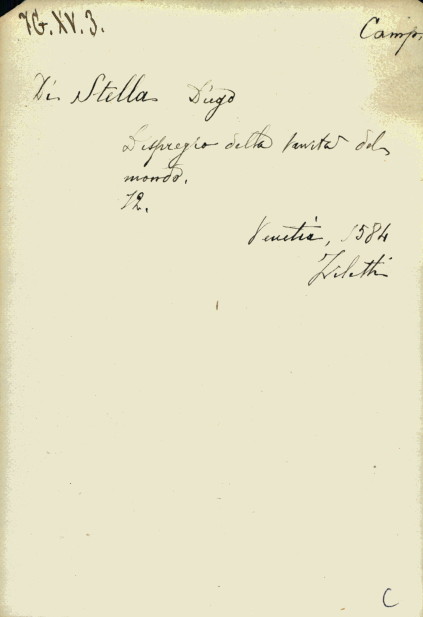 7G.XV.3.
Camp.
Di Stella Diego
Dispregio della vanità del
mondo.
12.
Venetia, 1584
Ziletti
C